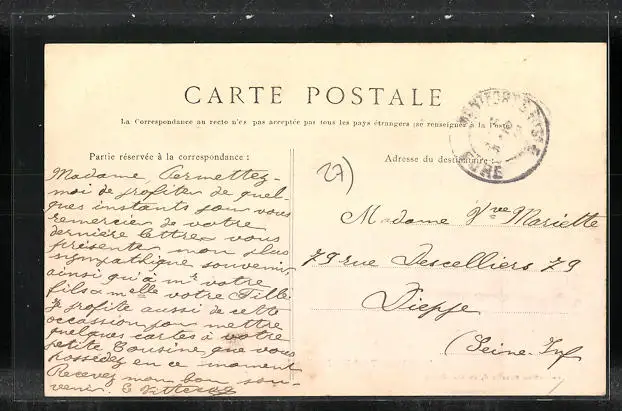 CARTE POSTALE
La Correspondance au recto n'est pas acceptée par tous les pays étrangers (se renseigner à la Poste)
Partie réservée à la correspondance :
Adresse du destinataire :
MONTFORT-S-RISLE
EURE
27)
Madame, Permettez-
moi de profiter de quel-
ques instants pour vous
remercier de votre
dernière lettre & vous
présente mon plus
sympathique souvenir,
ainsi qu'à mr votre
fils & melle votre Fille
Je profite aussi de cette
occasion pour mettre
quelques cartes à votre
petite Cousine, que vous
possédez en ce moment
Recevez mon bon sou-
venir.
Madame Vve Mariette
79 rue Descelliers 79
Dieppe
(Seine-Inf